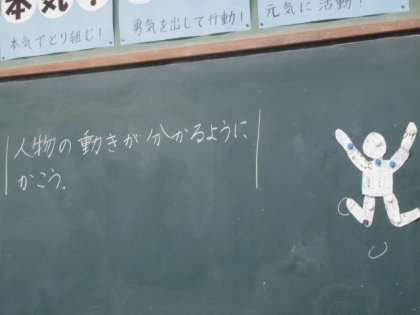 本気
本気でとり組む!
男気を出して行動!
元気に活動!
人物の動きが分かるように
かこう。